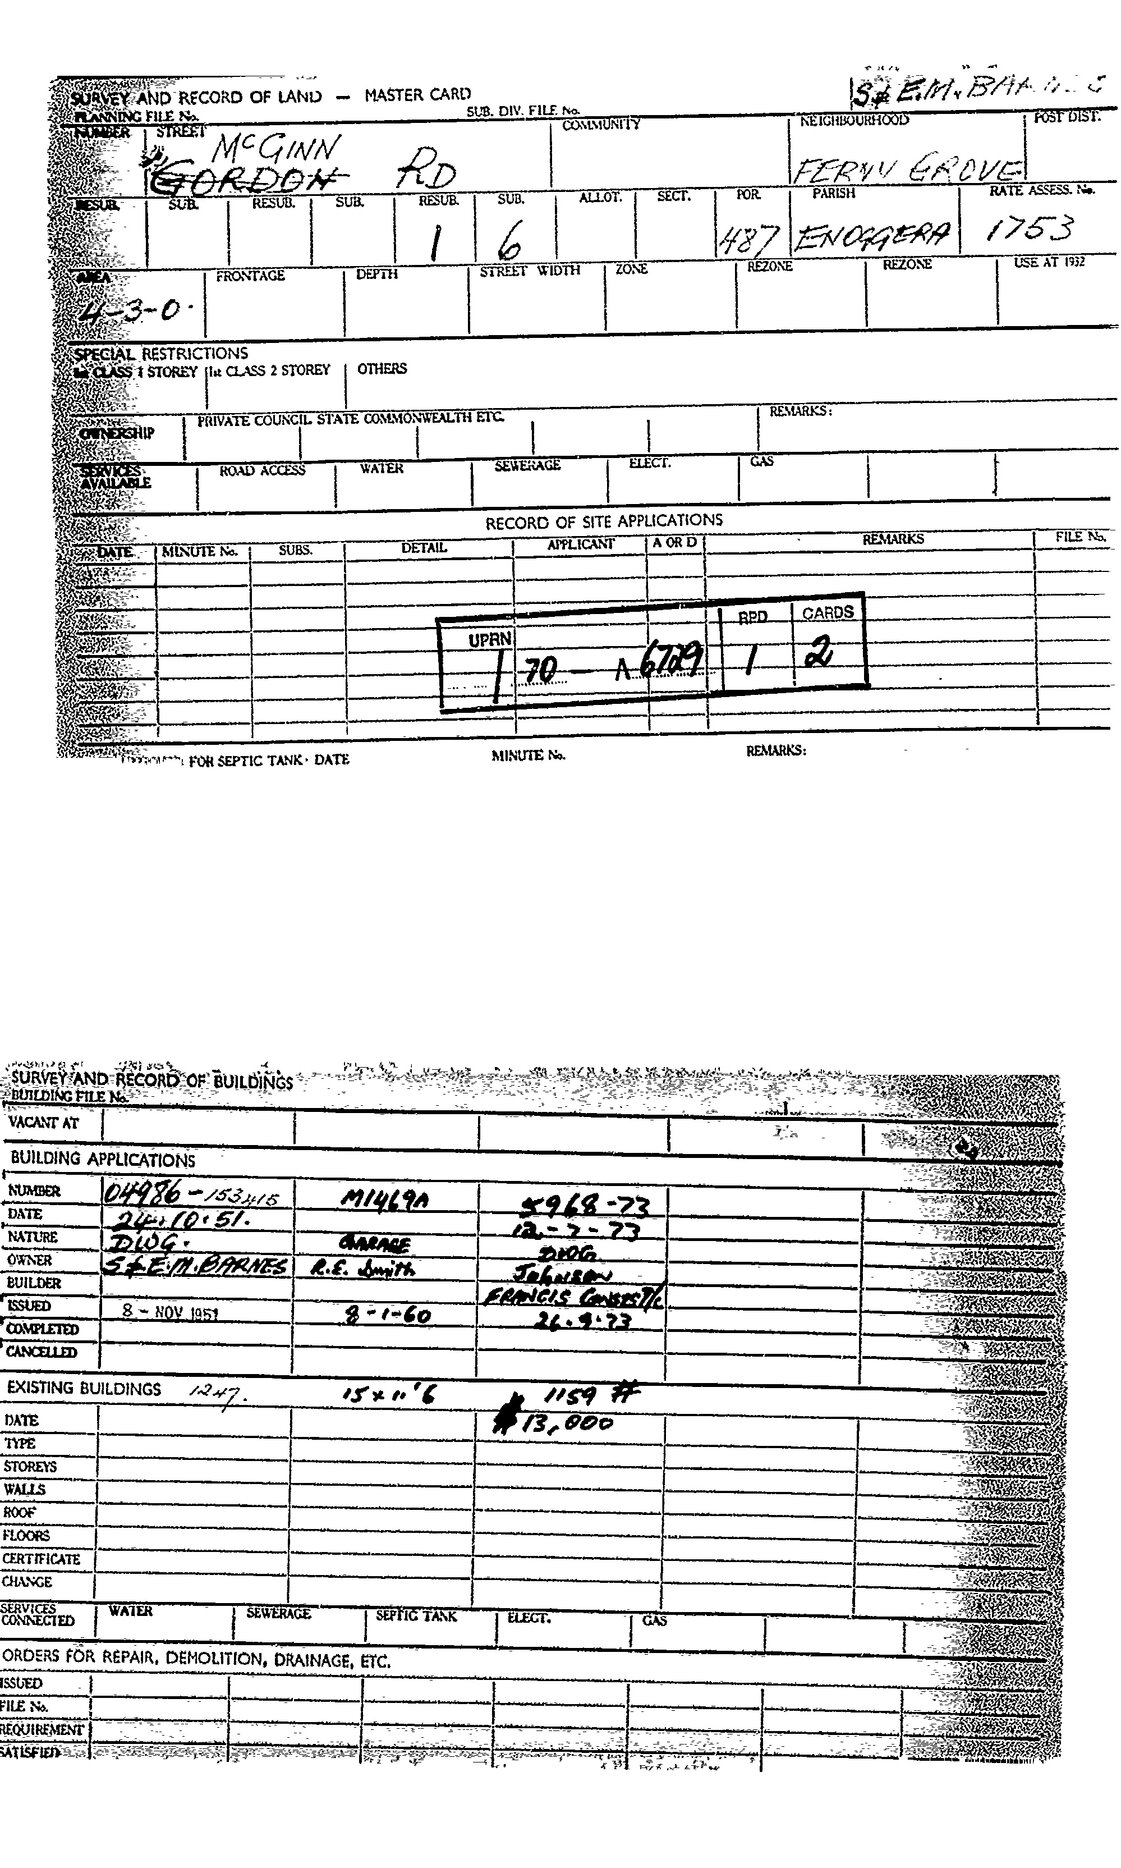 S & E.M. BARNES
SURVEY AND RECORD OF LAND — MASTER CARD
PLANNING FILE No. SUB. DIV. FILE No.
NUMBER STREET COMMUNITY NEIGHBOURHOOD POST DIST.
McGINN
GORDON RD FERNY GROVE
RESUB. SUB. RESUB. SUB. RESUB. SUB. ALLOT. SECT. POR. PARISH RATE ASSESS. No.
1 6 487 ENOGGERA 1753
AREA FRONTAGE DEPTH STREET WIDTH ZONE REZONE REZONE USE AT 1932
4-3-0.
SPECIAL RESTRICTIONS
1st CLASS 1 STOREY 1st CLASS 2 STOREY OTHERS
PRIVATE COUNCIL STATE COMMONWEALTH ETC. REMARKS:
OWNERSHIP
SERVICES AVAILABLE ROAD ACCESS WATER SEWERAGE ELECT. GAS
RECORD OF SITE APPLICATIONS
DATE MINUTE No. SUBS. DETAIL APPLICANT A OR D REMARKS FILE No.
UPRN RPD CARDS
70 — A 6729 1 2
FOR SEPTIC TANK · DATE MINUTE No. REMARKS:
SURVEY AND RECORD OF BUILDINGS
BUILDING FILE No.
VACANT AT
BUILDING APPLICATIONS
NUMBER 04986-153415 M1469A 5968-73
DATE 24.10.51. 12-7-73
NATURE DWG. GARAGE DWG
OWNER S & E.M. BARNES R.E. Smith Johnson
BUILDER FRANCIS Consts P/L
ISSUED 8 - NOV 1951 8-1-60 26.9.73
COMPLETED
CANCELLED
EXISTING BUILDINGS 1247. 15 x 11'6 1159 #
DATE $13,000
TYPE
STOREYS
WALLS
ROOF
FLOORS
CERTIFICATE
CHANGE
SERVICES CONNECTED WATER SEWERAGE SEPTIC TANK ELECT. GAS
ORDERS FOR REPAIR, DEMOLITION, DRAINAGE, ETC.
ISSUED
FILE No.
REQUIREMENT
SATISFIED